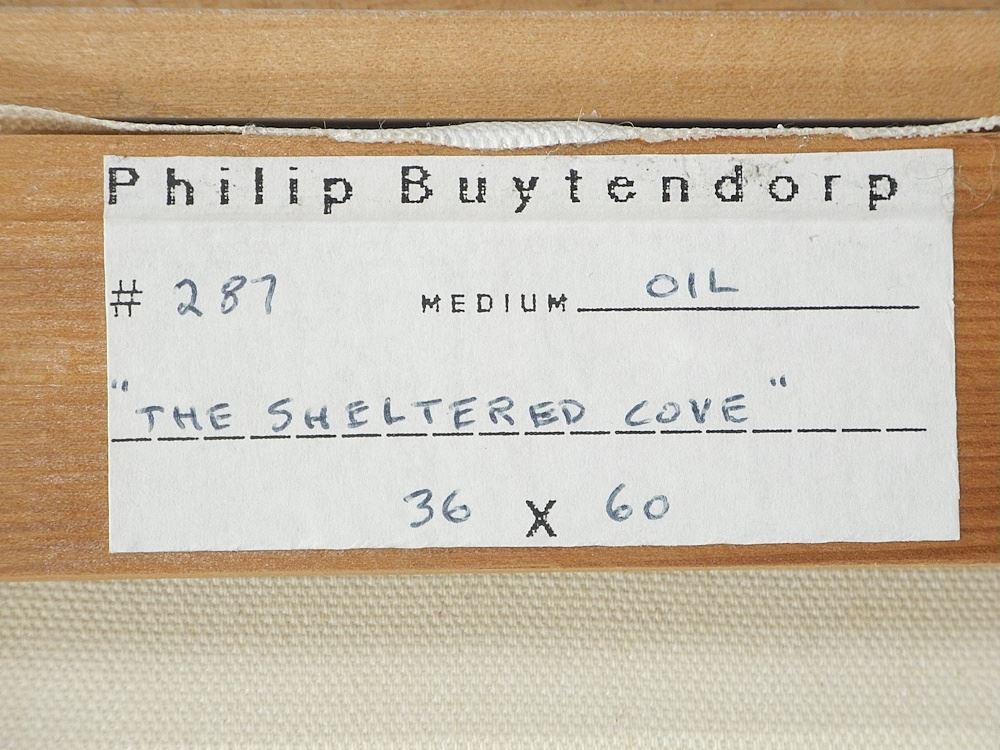 Philip Buytendorp
# 287 MEDIUM OIL
"THE SHELTERED COVE"
36 X 60